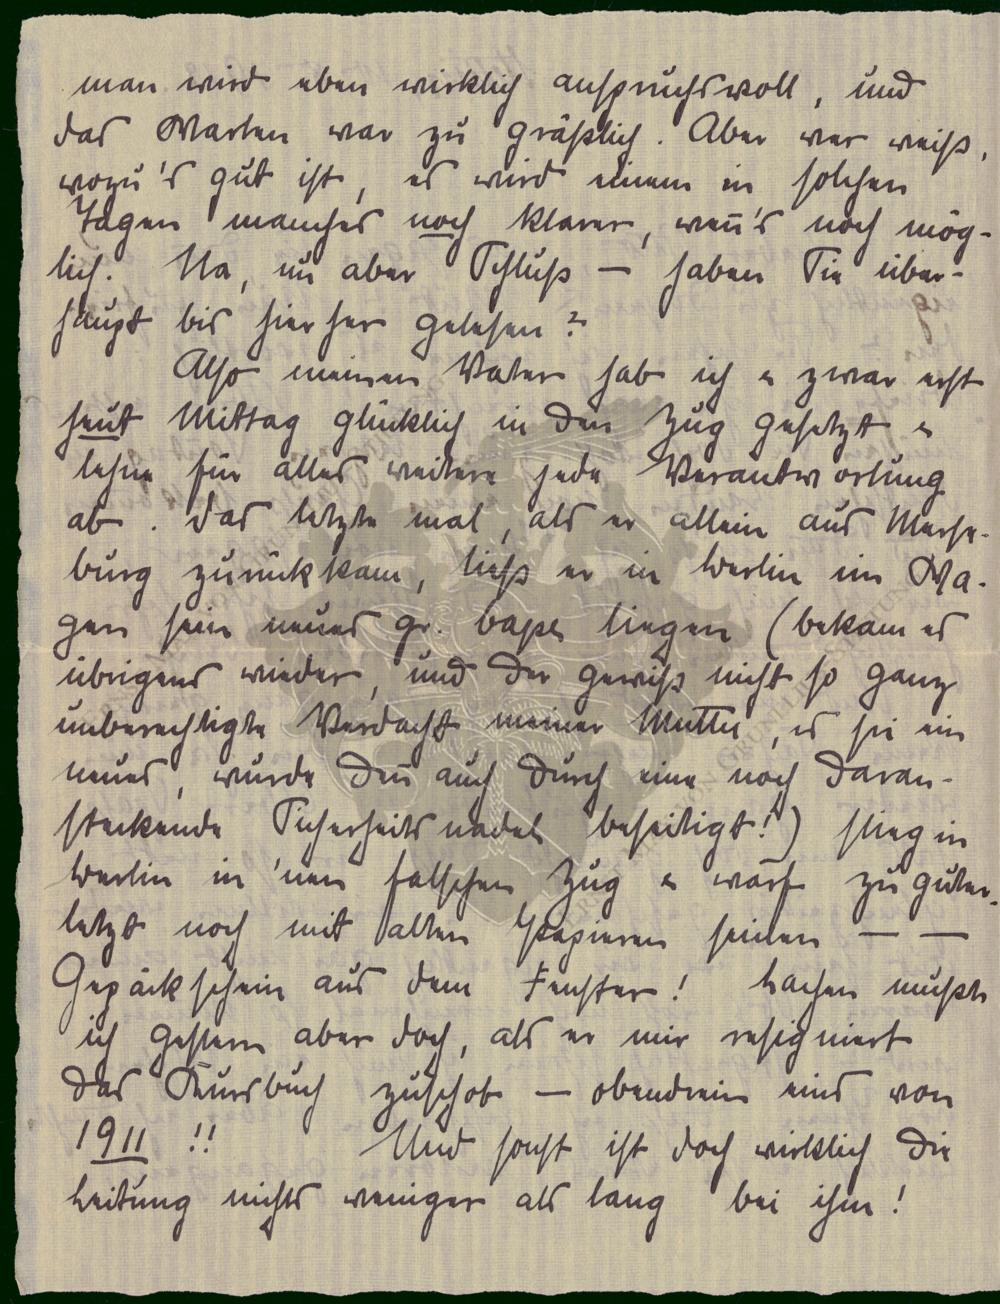 man wird eben wirklich anspruchsvoll, und
das Warten war zu gräßlich. Aber wer weiß,
wozu's gut ist, es wird einem in solchen
Tagen manches noch klarer, weñ's noch mög-
lich. Na, nu aber Schluß — haben Sie über-
haupt bis hierher gelesen?
Also meinen Vater hab ich u zwar erst
heut Mittag glücklich in den Zug gesetzt u
lehne für alles weitere jede Verantwortung
ab. Das letzte mal, als er allein aus Merse-
burg zurückkam, ließ er in Berlin im Wa-
gen sein neues gr. liegen (bekam es
übrigens wieder, und der gewiß nicht so ganz
unberechtigte Verdacht meiner Mutter, es sei ein
neues, wurde deñ auch durch eine noch daran-
steckende Sicherheitsnadel beseitigt!) stieg in
Berlin in 'nen falschen Zug u warf zu guter-
letzt noch mit alten Papieren seinen — —
Gepäckschein aus dem Fenster! Lachen mußte
ich gestern aber doch, als er mir resigniert
das Kursbuch zuschob — obendrein eins von
1911 !! Und sonst ist doch wirklich die
Leitung nichts weniger als lang bei ihm!